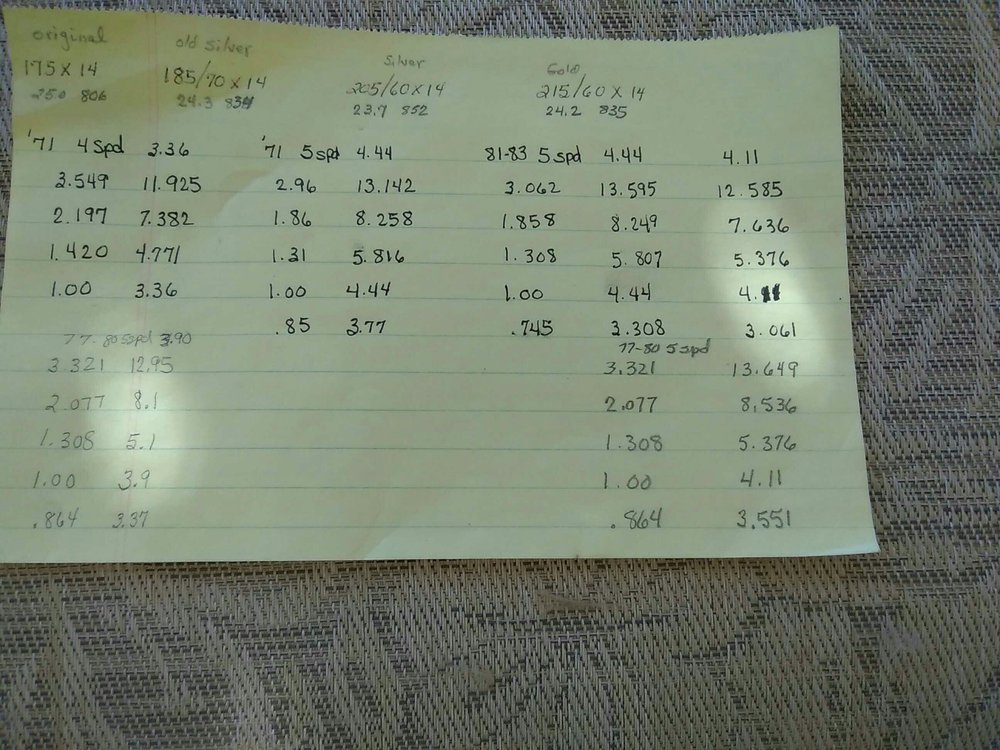 original old silver Silver Gold
175 x 14 185/70 x 14 205/60 x 14 215/60 x 14
25.0 806 24.3 834 23.7 852 24.2 835
'71 4 Spd 3.36 '71 5 spd 4.44 81-83 5 spd 4.44 4.11
3.549 11.925 2.96 13.142 3.062 13.595 12.585
2.197 7.382 1.86 8.258 1.858 8.249 7.636
1.420 4.771 1.31 5.816 1.308 5.807 5.376
1.00 3.36 1.00 4.44 1.00 4.44 4.11
.85 3.77 .745 3.308 3.061
77-80 5spd 3.90 77-80 5 spd
3.321 12.95 3.321 13.649
2.077 8.1 2.077 8.536
1.308 5.1 1.308 5.376
1.00 3.9 1.00 4.11
.864 3.37 .864 3.551